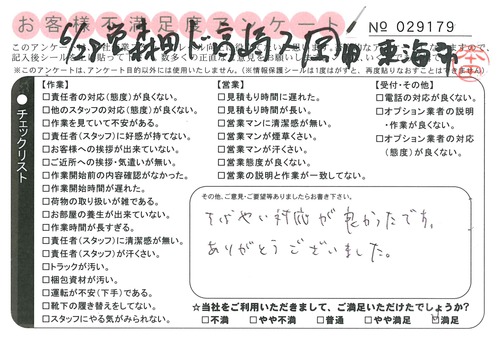 お客様不満足度アンケート
№ 029179
記入後シールを
※このアンケートは、アンケート目的以外には使用いたしません。(※情報保護シールは1度がすと、再度貼りなおすことはできません)
チェックリスト
【作業】
□責任者の対応(態度)が良くない。
□他のスタッフの対応(態度)が良くない。
□作業を見ていて不安がある。
□責任者(スタッフ)に好感が持てない。
□お客様への挨拶が出来ていない。
□ご近所への挨拶・気遣いが無い。
□作業開始前の内容確認がなかった。
□作業開始時間が遅れた。
□荷物の取り扱いが雑である。
□お部屋の養生が出来ていない。
□作業時間が長すぎる。
□責任者(スタッフ)に清潔感が無い。
□責任者(スタッフ)が汗くさい。
□トラックが汚い。
□梱包資材が汚い。
□運転が不安(下手)である。
□靴下の履き替えをしてない。
□スタッフにやる気がみられない。
【営業】
□見積もり時間に遅れた。
□見積もり時間が長い。
□営業マンに清潔感が無い。
□営業マンが煙草くさい。
□営業マンが汗くさい。
□営業態度が良くない。
□営業の説明と作業が一致してない。
【受付・その他】
□電話の対応が良くない。
□オプション業者の説明
・作業が良くない。
□オプション業者の対応
(態度)が良くない。
その他、ご意見・ご要望等ありましたらお書き下さい。
すばやい対応が良かったです。
ありがとうございました。
☆当社をご利用いただきまして、ご満足いただけたでしょうか?
□不満 □やや不満 □普通 □やや満足 □満足